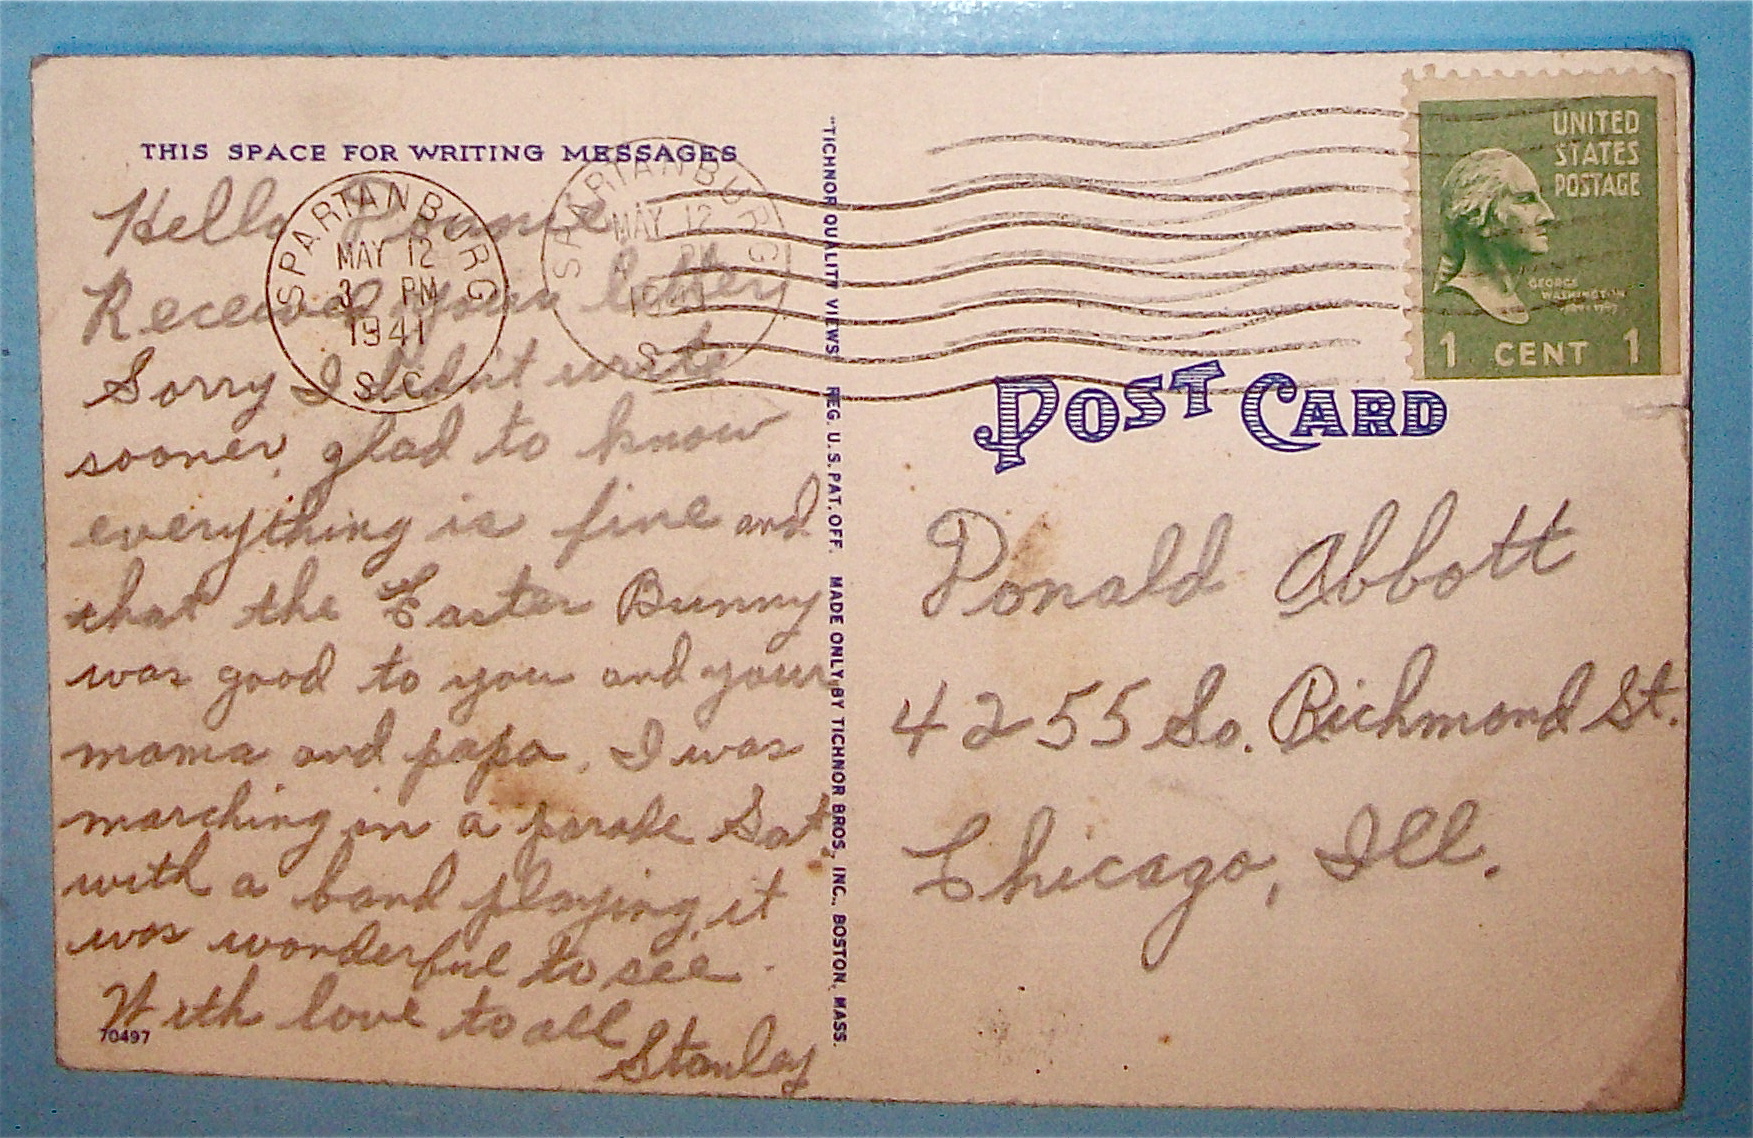 THIS SPACE FOR WRITING MESSAGES
Hello
Received your letter
Sorry I didn't write
sooner, glad to know
everything is fine and
that the Easter Bunny
was good to you and your
mama and papa. I was
marching in a parade Sat.
with a band playing, it
was wonderful to see.
With love to all
Stanley
70497
SPARTANBURG
MAY 12
3 PM
1941
S.C.
SPARTANBURG
MAY 12
PM
1941
S
"TICHNOR QUALITY VIEWS" REG. U. S. PAT. OFF. MADE ONLY BY TICHNOR BROS., INC., BOSTON, MASS.
UNITED
STATES
POSTAGE
GEORGE
WASHINGTON
1 CENT 1
POST CARD
Donald Abbott
4255 So. Richmond St.
Chicago, Ill.